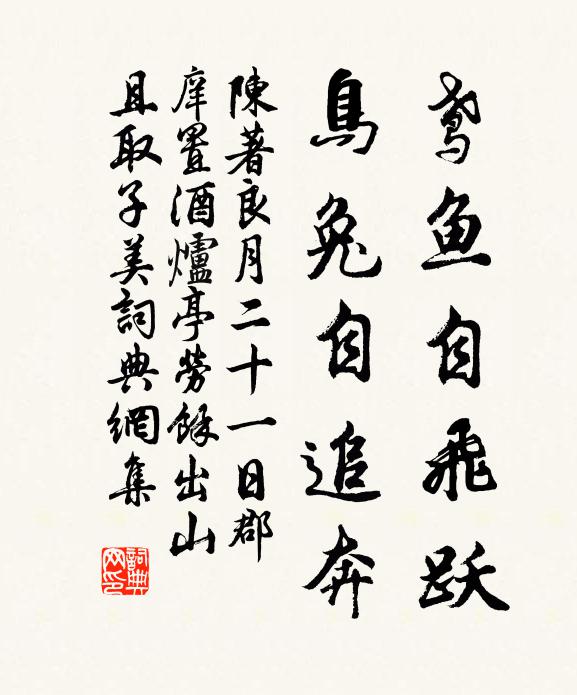 鸢鱼自飛跃
烏兔自追奔
陳著良月二十一日郡
庠置酒爐亭勞餘出山
且取子美詞典網集
詞典网印